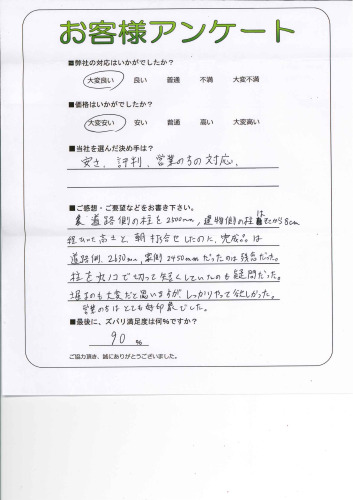 お客様アンケート
■弊社の対応はいかがでしたか？
大変良い　良い　普通　不満　大変不満
■価格はいかがでしたか？
大変安い　安い　普通　高い　大変高い
■当社を選んだ決め手は？
安さ、評判、営業の方の対応、
■ご感想・ご要望などをお書き下さい。
裏道路側の柱を2500mm，建物側の柱はそこから8cm
程ひいて高さと、朝打合せしたのに、完成品は
道路側、2630mm、家側2450mmだったのは残念だった。
柱を丸ノコで切って短くしていたのも疑問だった。
堀るのも大変だと思いますが、しっかりやって欲しかった。
営業の方はとても好印象でした。
■最後に、ズバリ満足度は何％ですか？
90 %
ご協力頂き、誠にありがとうございました。